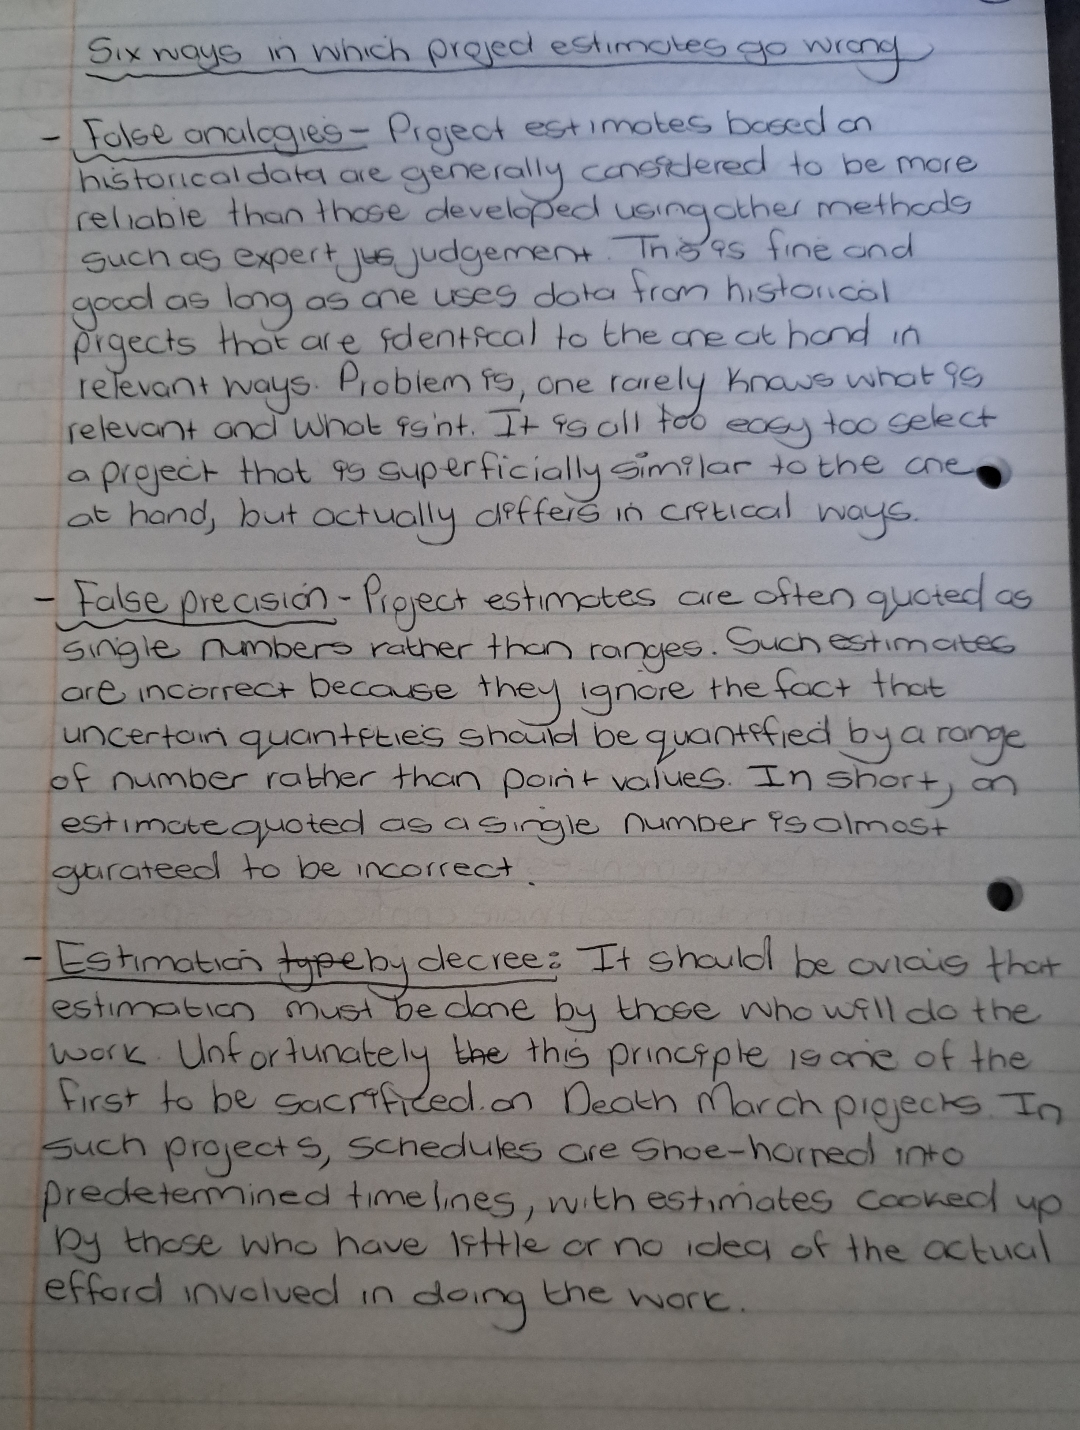 Six ways in which project estimates go wrong
- False analogies - Project estimates based on
historical data are generally considered to be more
reliable than those developed using other methods
such as expert jus judgement. This is fine and
good as long as one uses data from historical
projects that are identical to the one at hand in
relevant ways. Problem is, one rarely knows what is
relevant and what isn't. It is all too easy too select
a project that is superficially similar to the one
at hand, but actually differs in critical ways.
- False precision - Project estimates are often quoted as
single numbers rather than ranges. Such estimates
are incorrect because they ignore the fact that
uncertain quantities should be quantified by a range
of number rather than point values. In short, an
estimate quoted as a single number is almost
garateed to be incorrect.
- Estimation type by decree: It should be ovious that
estimation must be done by those who will do the
work. Unfortunately the this principle is one of the
first to be sacrificed on Death March projects. In
such projects, schedules are shoe-horned into
predetermined timelines, with estimates cooked up
by those who have little or no idea of the actual
efford involved in doing the work.